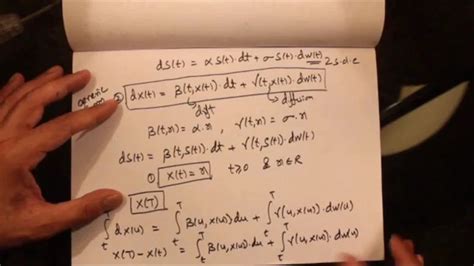 dS(t) = α S(t)·dt + σ S(t)·dW(t) s.d.e
generic
② dX(t) = β(t, X(t))·dt + γ(t, X(t))·dW(t)
drift diffusion
β(t,x) = α·x, γ(t,x) = σ·x
dS(t) = β(t, S(t))·dt + γ(t, S(t))·dW(t)
① X(t) = x t≥0 & x∈R
X(T)
∫_t^T dX(u) = ∫_t^T β(u, X(u)) du + ∫_t^T γ(u, X(u))·dW(u)
X(T) - X(t) = ∫_t^T β(u, X(u))·du + ∫_t^T γ(u, X(u))·dW(u)